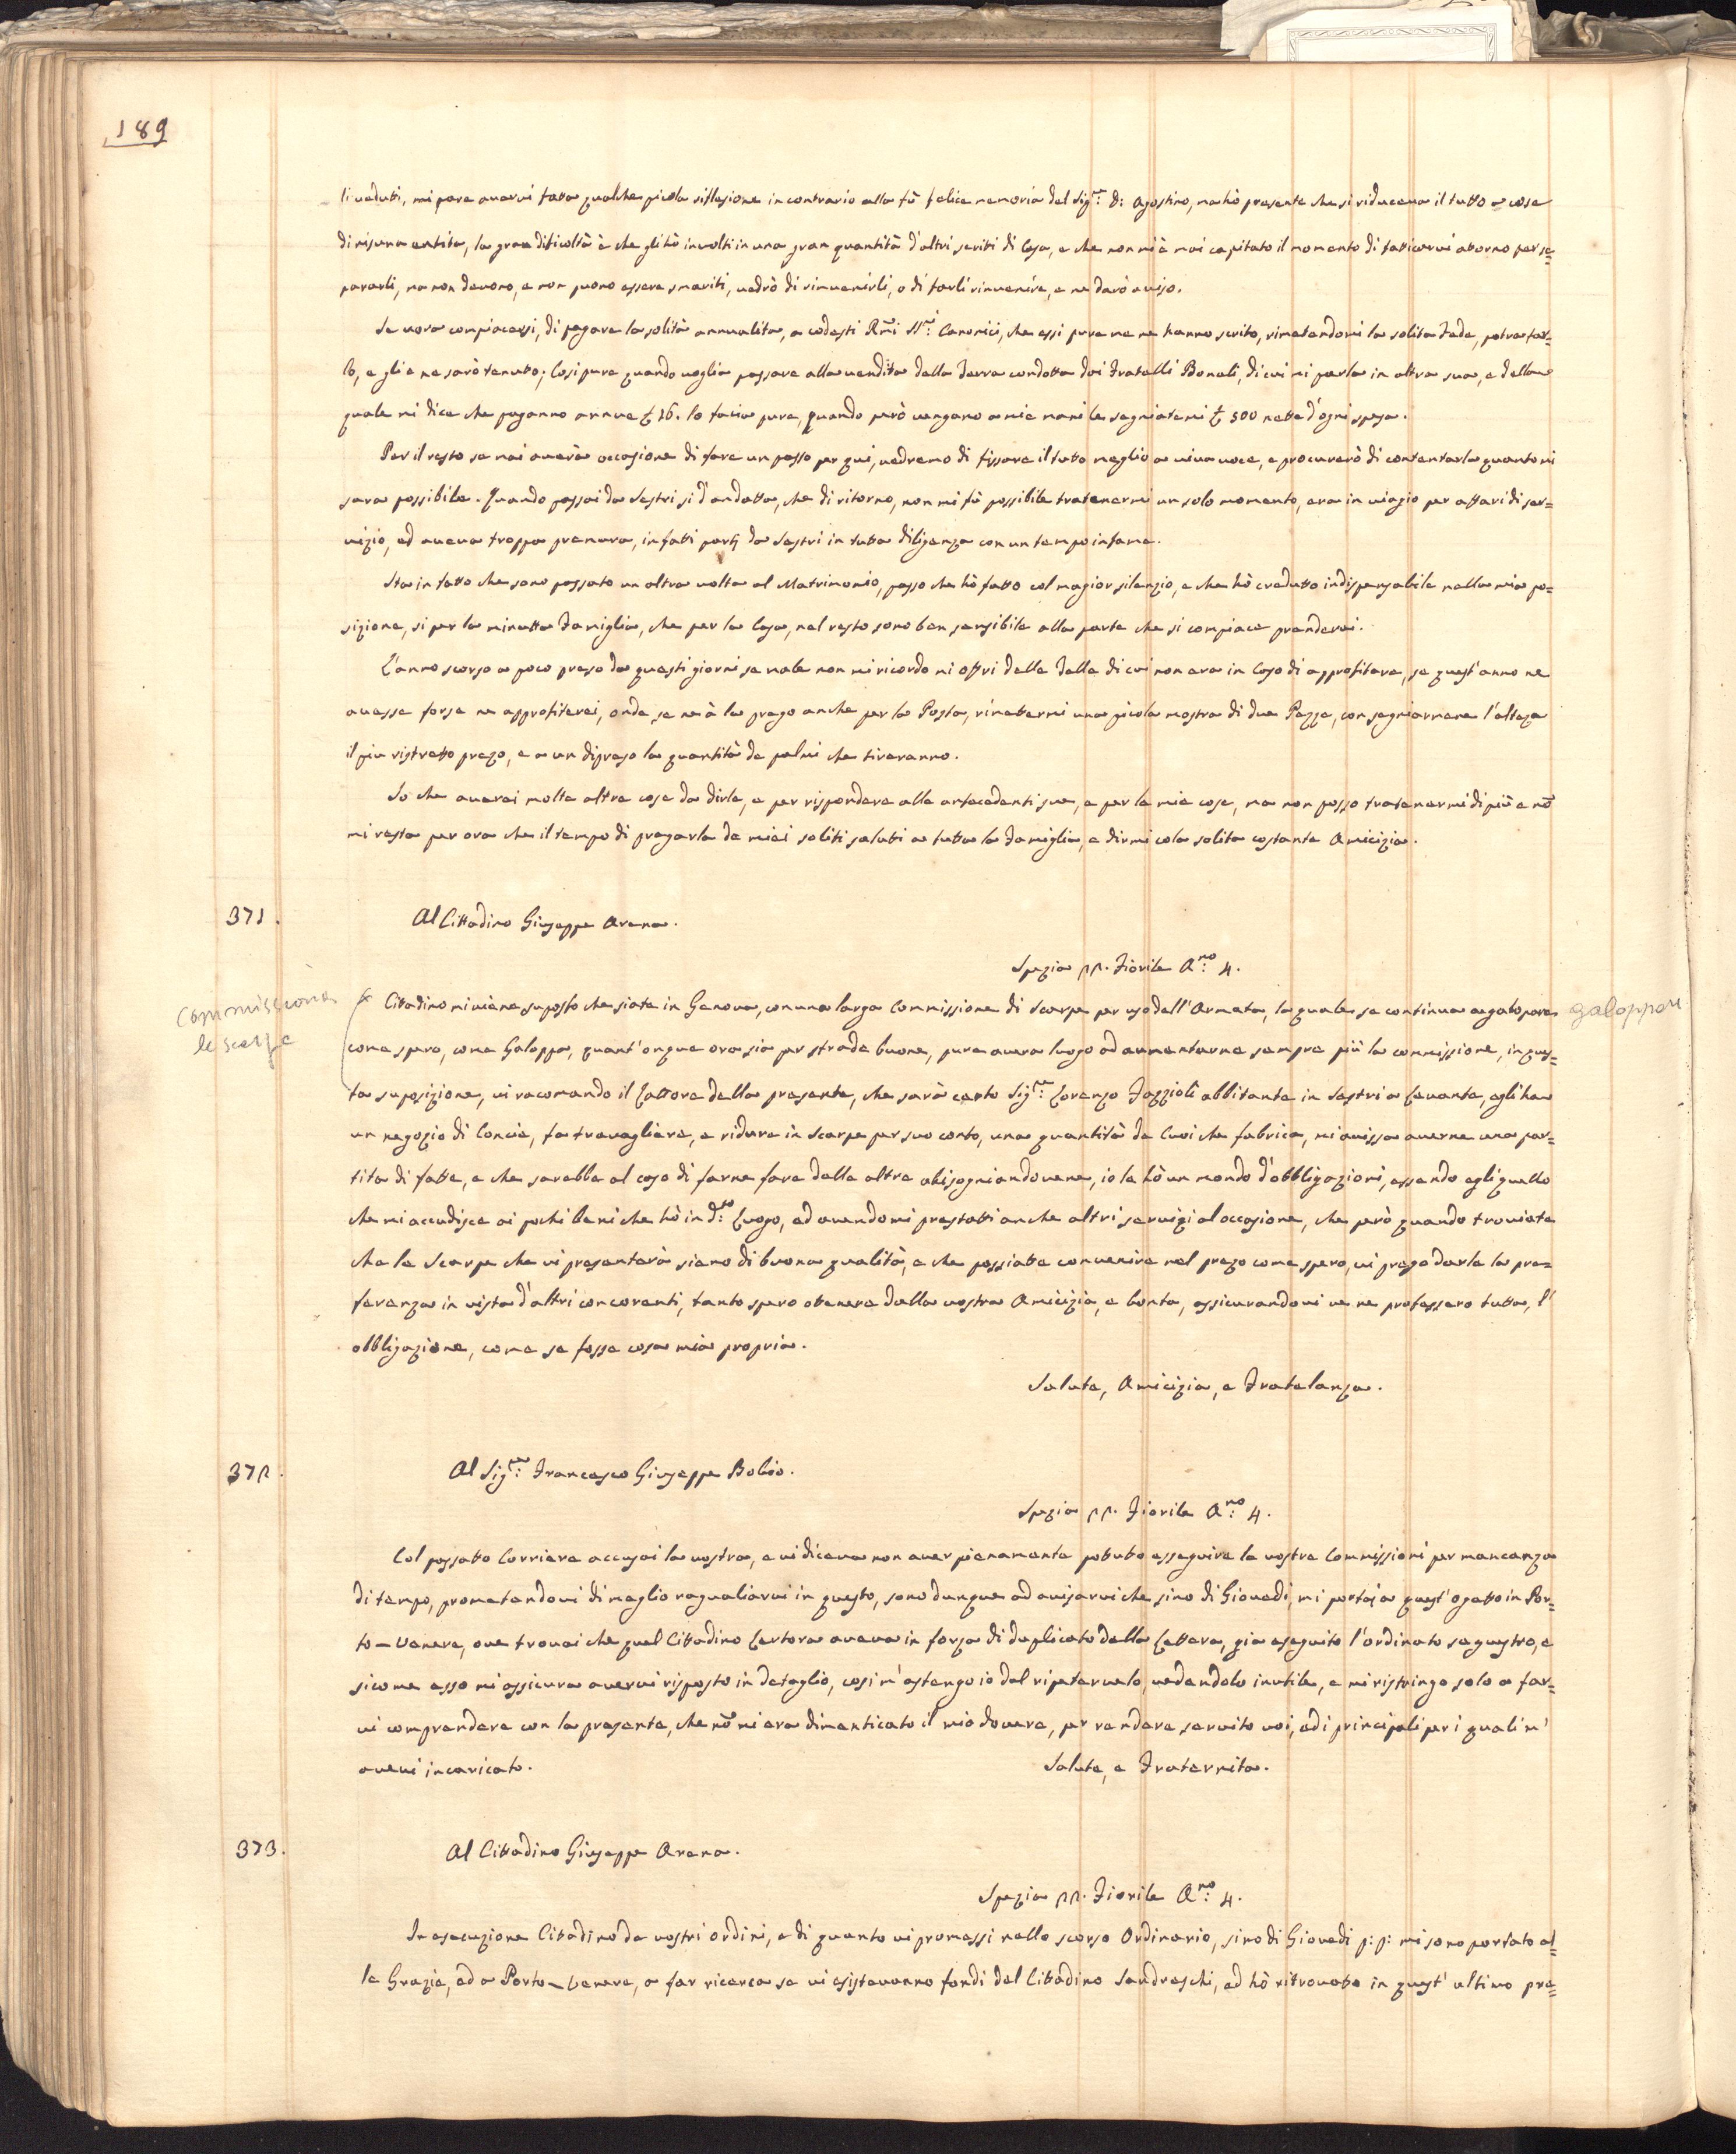 189
li veduti, mi pare avervi fatta qualche picola riflesione in contrario alla fù felice memoria del Sig.re D: Agostino, ma hò presente che si riduceva il tutto a cose
di nisuna entita, la gran dificoltà è che gli hò involti in una gran quantità d'altri scriti di Casa, e che non mi è mai capitato il momento di faticarvi atorno per se=
pararli, ma non devono, e non puono essere smariti, vedrò di rinvenirli, o di farli rinvenire, e ne darò aviso.
Se vora compiacersi, di pagare la solita annualita, a codesti R.mi SS.ri Canonici, che essi pure me ne hanno scrito, rimetendomi la solita Fede, potra far=
lo, e gli e ne sarò tenuto; Cosi pure quando voglia passare alla vendita della Terra condotta dai Fratelli Bonati, di cui mi parla in altra sua, e della
quale mi dice che paganno annue £ 16. lo facia pure, quando però vengano a mie mani le segniatemi £ 500 nette d'ogni spesa.
Per il resto se mai averà occasione di fare un passo per qui, vedremo di fissare il tutto meglio a viva voce, e procurerò di contentarla quanto mi
sara possibile. Quando passai da Sestri si d'andatta, che di ritorno, non mi fù possibile tratenermi un solo momento, ero in viagio per affari di ser=
vizio, ed aveva troppa premura, infatti partj da Sestri in tutta diligenza con un tempo infame.
Sta in fatto che sono passato un altra volta al Matrimonio, passo che hò fatto col magior silenzio, e che hò creduto indispensabile nella mia po=
sizione, si per la minutta Famiglia, che per la Casa, nel resto sono ben sensibile alla parte che si compiace prendervi.
L'anno scorso a poco preso da questi giorni se male non mi ricordo mi offri delle Telle di cui non era in Caso di approfitare, se quest'anno ne
avesse forse ne approfiterei, onde se ne à la prego anche per la Posta, rimettermi una picola mostra di due Pezze, con segniarmene l'alteza
il piu ristretto prezo, e a un dipreso la quantità de palmi che tireranno.
So che averei molte altre cose da dirle, e per rispondere alle antecedenti sue, e per le mie cose, ma non posso tratenermi di più e nõ
mi resta per ora che il tempo di pregarla de miei soliti saluti a tutta la Famiglia, e dirmi cola solita costante Amicizia.
371.
Al Cittadino Giuseppe Arena.
Spezia 22. Fiorile A.no 4.
Commissione
le scarpe
Citadino mi viene suposto che siate in Genova, con una larga Commissione di Scarpe per uso dell'Armata, la quale se continua a galopare
galoppare
come spero, come Galoppa, quant'onque ora sia per strade buone, pure avera luogo ad aumentarne sempre più la commissione, in ques=
ta suposizione, vi racomando il Lattore della presente, che sarà certo Sig.re Lorenzo Fazzioli abbitante in Sestri a Levante, egli ha
un negozio di Concia, fa travagliare, e ridure in Scarpe per suo conto, una quantità de Cuoi che fabrica, mi avissa averne una par=
tita di fatte, e che sarebbe al caso di farne fare delle altre abisogniandovene, io le hò un mondo d'obbligazioni, essendo egli quello
che mi accudisce ai pochi beni che hò in d.to Luogo, ed avendomi prestatti anche altri servizi al occasione, che però quando troviate
che le Scarpe che vi presenterà siano di buona qualità, e che possiatte convenire nel prezo come spero, vi prego darle la pre=
ferenza in vista d'altri concorenti, tanto spero otenere dalla vostra Amicizia, e bonta, assicurandovi ve ne professero tutta, l'
obbligazione, come se fosse cosa mia propria.
Salute, Amicizia, e Fratelanza.
372.
Al Sig.re Francesco Giuseppe Bolio.
Spezia 22. Fiorile A.no 4.
Col passatto Corriere accusai la vostra, e vi diceva non aver pienamente potuto esseguire le vostre Commissioni per mancanza
di tempo, prometendovi di meglio ragualiarvi in questo, sono dunque ad avisarvi che sino di Giovedi, mi portai a quest'ogetto in Por=
to-Venere, ove trovai che quel Citadino Certora aveva in forza di duplicato della Lettera, gia eseguito l'ordinato sequestro, e
sicome esso mi assicura avervi risposto in detaglio, cosi m'astengo io dal ripetervelo, vedendolo inutile, e mi ristringo solo a far=
vi comprendere con la presente, che nõ mi era dimenticato il mio dovere, per rendere servito voi, ed i principali per i quali m'
avevi incaricato.
Salute, e Fraternita.
373.
Al Citadino Giuseppe Arena.
Spezia 22. Fiorile A.no 4.
In esecuzione Citadino de vostri ordini, e di quanto vi promessi nello scorso Ordinario, sino di Giovedi p: p: mi sono portato al=
le Grazie, ed a Porto-Venere, a far ricerca se vi esistevanno fondi del Citadino Sandreschi, ed hò ritrovato in quest'ultimo pre=